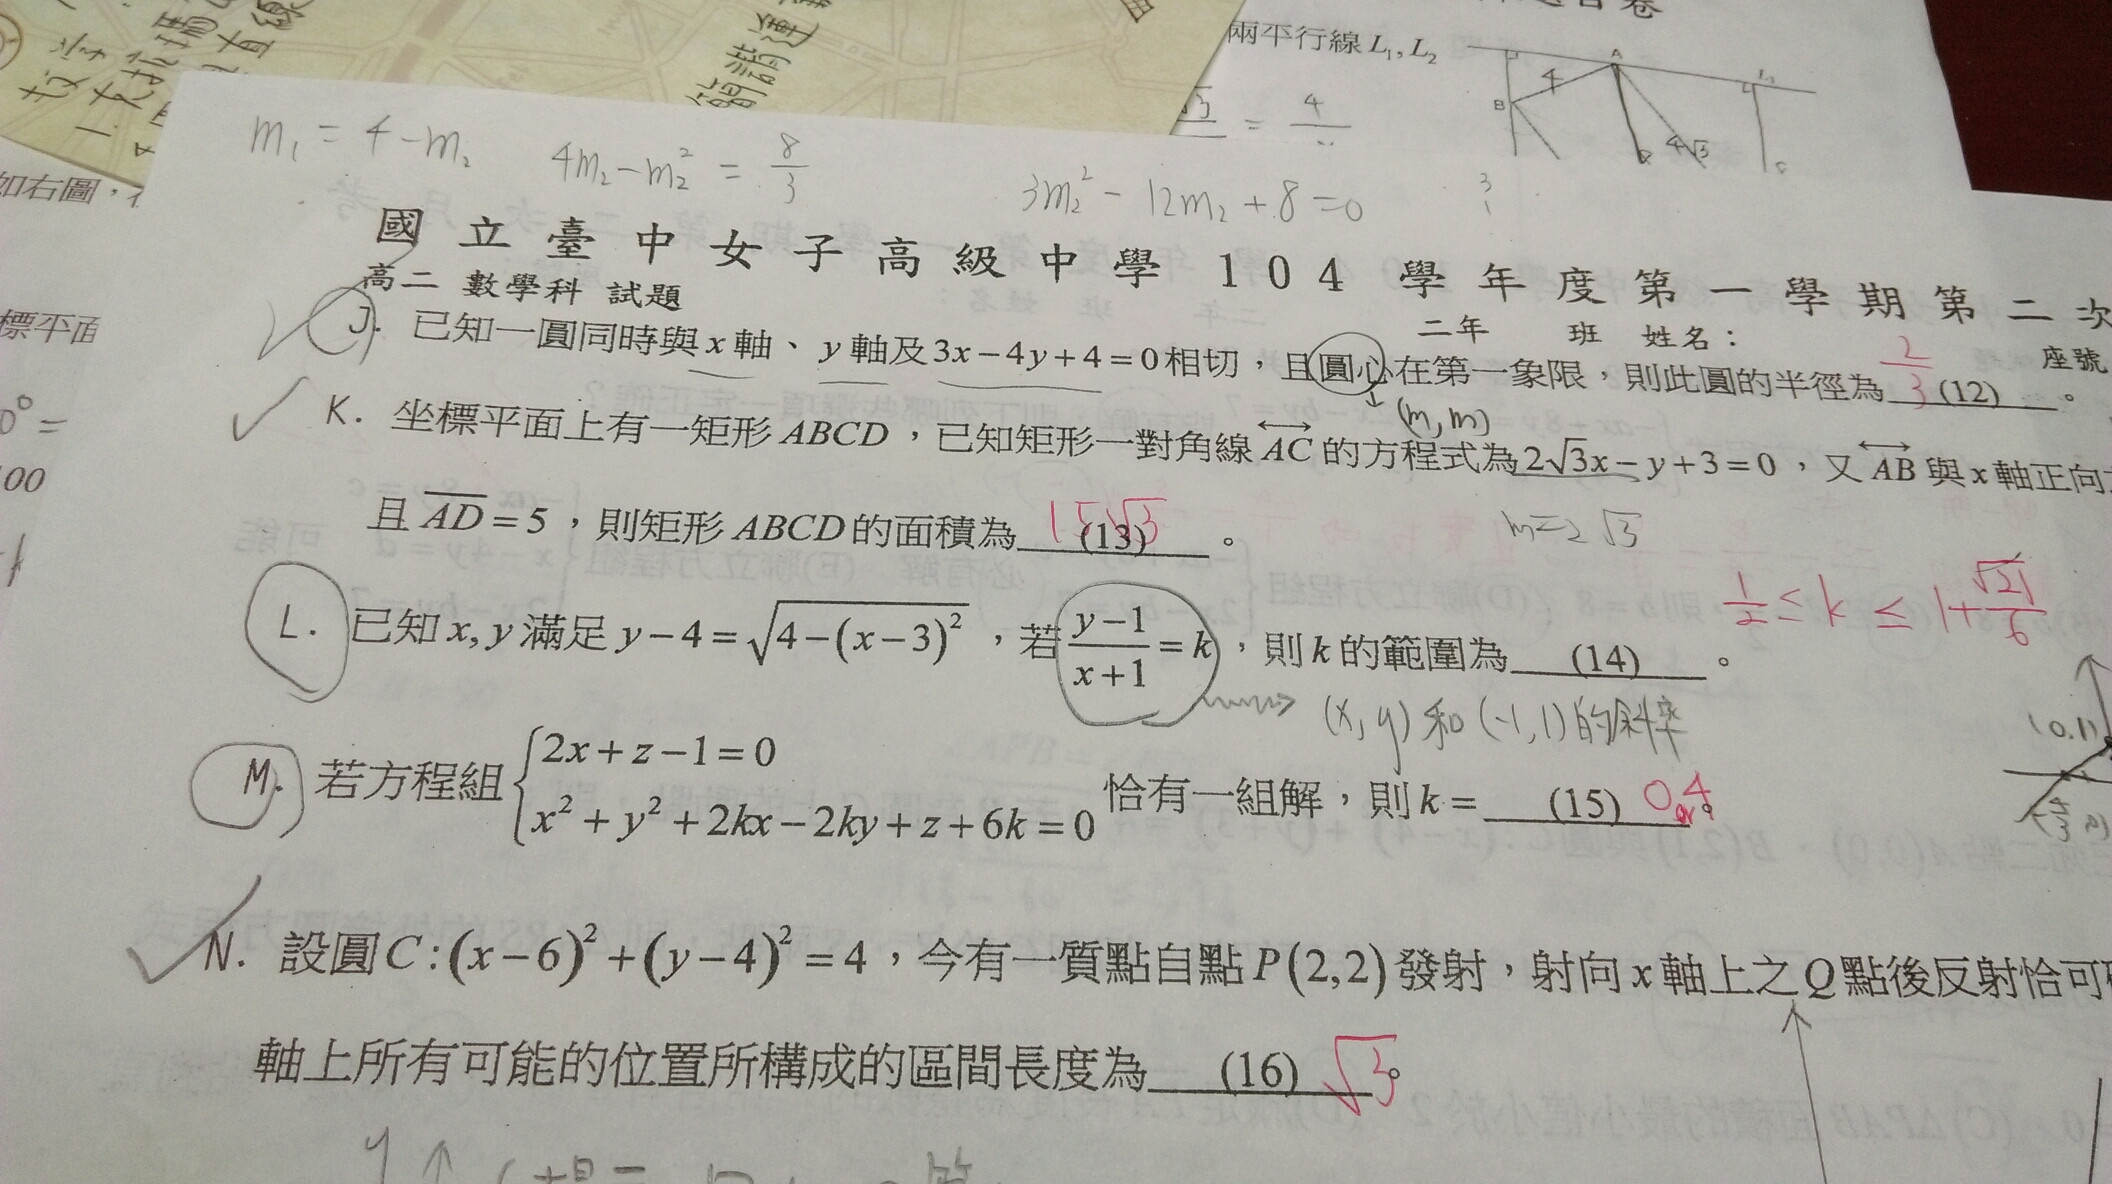 兩平行線 L₁, L₂
如右圖，
m₁ = 4 - m₂
4m₂ - m₂² = 8/3
3m₂² - 12m₂ + 8 = 0
國立臺中女子高級中學 104 學年度第一學期第二次
高二 數學科 試題
二年 班 姓名： 座號
J. 已知一圓同時與 x 軸、 y 軸及 3x-4y+4=0 相切，且圓心在第一象限，則此圓的半徑為 (12) 。 2/3
(m, m)
K. 坐標平面上有一矩形 ABCD，已知矩形一對角線 AC 的方程式為 2√3x-y+3=0，又 AB 與 x 軸正向
且 AD = 5，則矩形 ABCD 的面積為 (13) 。 15√3
m=2√3
1/2 ≤ k ≤ 1+√21/6
L. 已知 x, y 滿足 y-4=√(4-(x-3)²)，若 (y-1)/(x+1) = k，則 k 的範圍為 (14) 。
(x, y) 和 (-1, 1) 的斜率
M. 若方程組 { 2x+z-1=0
x²+y²+2kx-2ky+z+6k=0 恰有一組解，則 k = (15) 。 0or4
N. 設圓 C:(x-6)²+(y-4)²=4，今有一質點自點 P(2,2) 發射，射向 x 軸上之 Q 點後反射恰可
軸上所有可能的位置所構成的區間長度為 (16) 。 √3